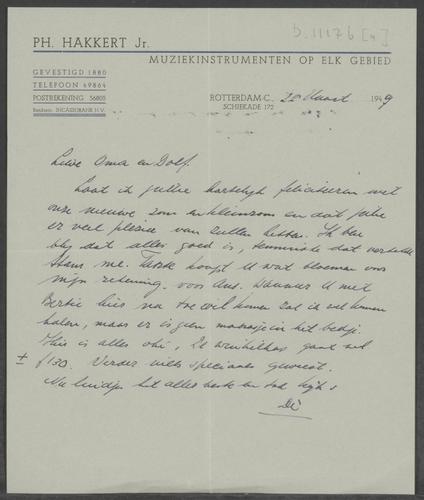 b.11176 [4]
PH. HAKKERT Jr.
MUZIEKINSTRUMENTEN OP ELK GEBIED
GEVESTIGD 1880
TELEFOON 49864
POSTREKENING 56805
Bankiers: INCASSOBANK N.V.
ROTTERDAM-C. 28 Maart 1949
SCHIEKADE 172
Lieve Oma en Dolf.
Laat ik jullie hartelijk feliciteren met
onze nieuwe zoon en kleinzoon en dat jullie
er veel plezier van zullen hebben. Ik ben
blij dat alles goed is, tenminste dat vertelde
Stans me. Koopt U wat bloemen voor
mijn rekening voor Ans. Wanneer U met
Bertie hier na toe wil komen zal ik wel komen
halen, maar er is geen in het bedje.
Thuis is alles oké, De winkelkas gaat wel
± f130. Verder niets speciaals geweest.
Nu luidjes het allerbeste en tot kijk.